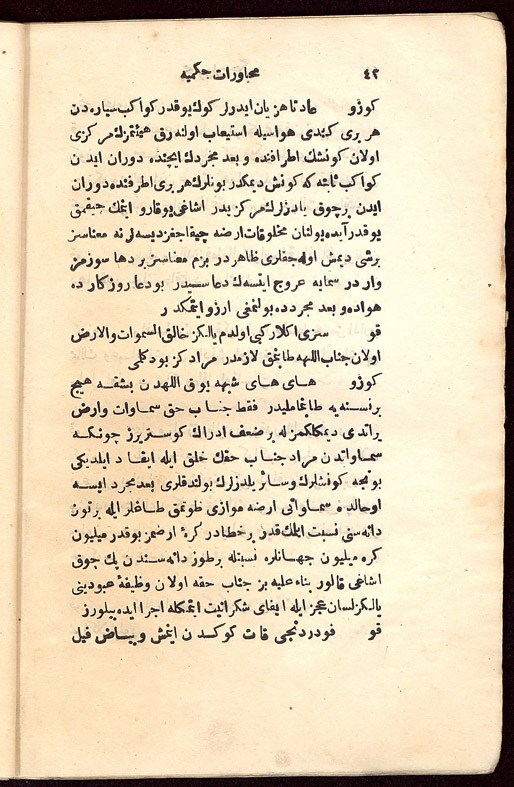 ٤٢ محاورات حكميه
كوزو عادتا هزيان ايدرلر كوك يوقدر كواكب سياره دن
هر برى كندى هواسيله استيعاب اولنه رق هيئتمزك مركزى
اولان كونشك اطرافنده و بعد مجردك ايچنده دوران ايدن
كواكب ثابته كه كونش ديمكدر بونلرك هر برى اطرافنده دوران
ايدن برچوق يلدزلرك مركزيدر اشاغى يوقارو ايتمك چيقمق
يوقدر آيده بولنان مخلوقات ارضه چيقاجغز ديسه لر نه معناسز
برشى ديمش اوله جقلرى ظاهردر بزم معناسز بر دها سوزمز
واردر سمايه عروج ايتسه ك دعاسيدر بودعا روزكارده
هواده و بعد مجردده بولنمغى ارزو ايتمكدر
قو سزى اكلار كبى اولدم يالكز خالق السموات والارض
اولان جناب اللهه طابمق لازمدر مرادكز بودكلمى
كوزو هاى هاى شبهه يوق اللهدن بشقه هيچ
برنسنه يه طابماملیدر فقط جناب حق سماوات وارض
يراتدى ديمكلكمزله بر ضعف ادراك كوستريرز چونكه
سماواتدن مراد جناب حقك خلق ايله ايقاد ايلديكى
بونجه كونشلرك وسائر يلدزلرك بولندقلرى بعد مجرد ايسه
اوحالده سماواتى ارضه موازى طوتمق طاغلر ايله برقوم
دانه سنى نسبت ايتمك قدر برخطادر كرۀ ارضمز بوقدر ميليون
كره ميليون جهانلره نسبتله برطوز دانه سندن پك چوق
اشاغى قالور بناء عليه بز جناب حقه اولان وظيفۀ عبوديتى
يالكز لسان عجز ايله ايفاى شكرانيت ايتمكله اجرا ايده بيلورز
قو فو دردنجى قات كوكدن ايتمش وبياض فيل